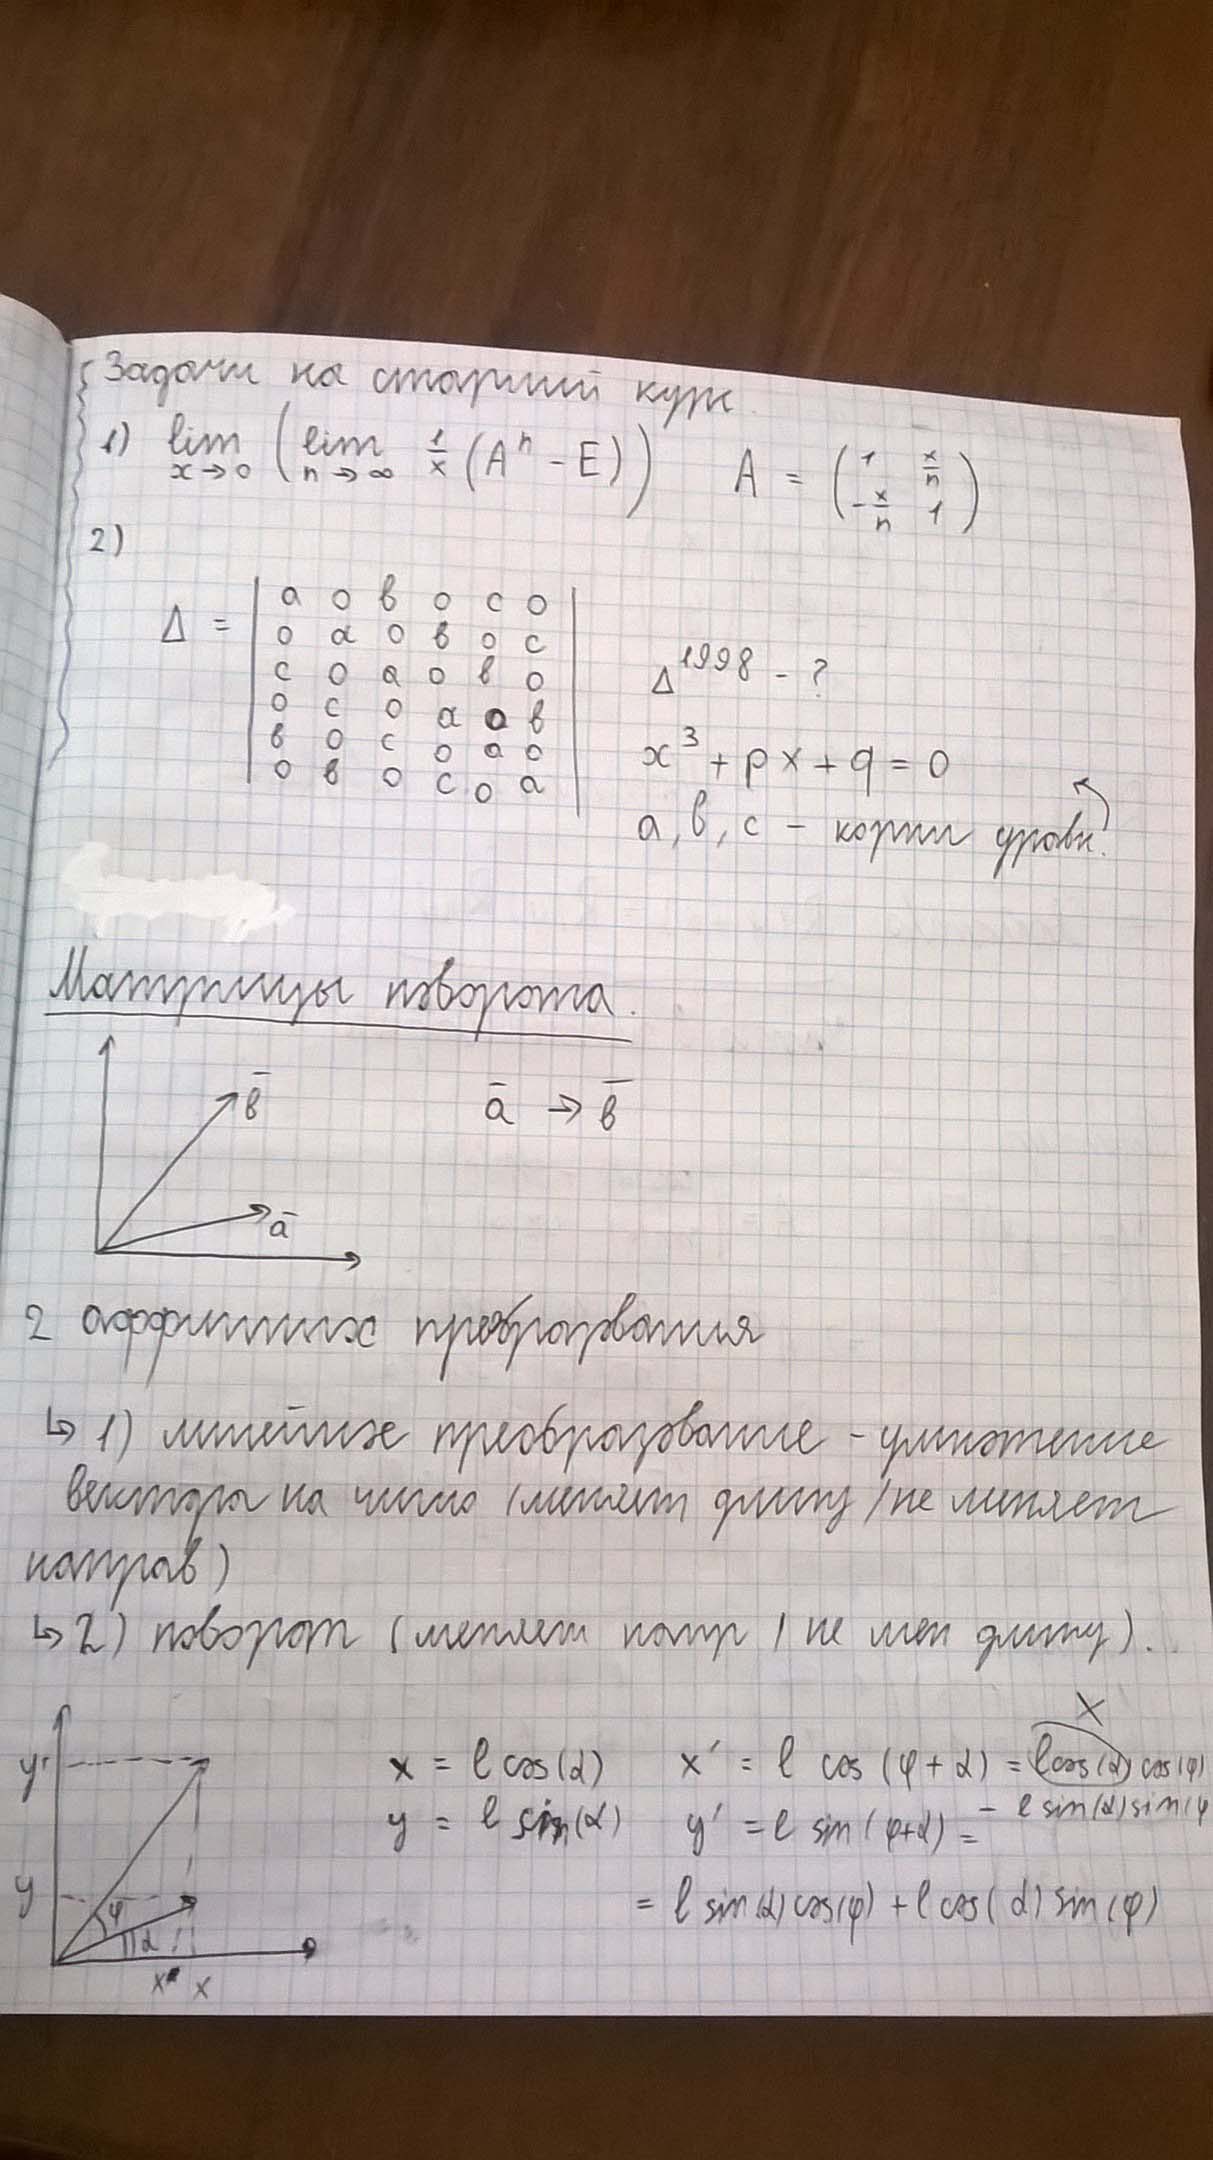 Задачи на старший курс.
1) lim x→0 ( lim n→∞ 1/x (Aⁿ - E) ) A = ( 1 x/n
-x/n 1 )
2)
Δ = | a 0 в 0 c 0 |
0 a 0 в 0 c
c 0 a 0 в 0
0 c 0 a 0 в
в 0 c 0 a 0
0 в 0 c 0 a
Δ¹⁹⁹⁸ - ?
x³ + px + q = 0
a, в, c - корни уравн.
Матрицы поворота.
в̄
ā → в̄
ā
2 аффинных преобразования
↳ 1) линейное преобразование - умножение
вектора на число (меняет длину / не меняет
направ)
↳ 2) поворот (меняет напр / не мен длину).
X
y' x = l cos(α) x' = l cos (φ + α) = l cos(α) cos(φ)
- l sin(α) sin(φ
y = l sin(α) y' = l sin(φ+α) =
y φ α = l sin(α) cos(φ) + l cos(α) sin(φ)
x' x